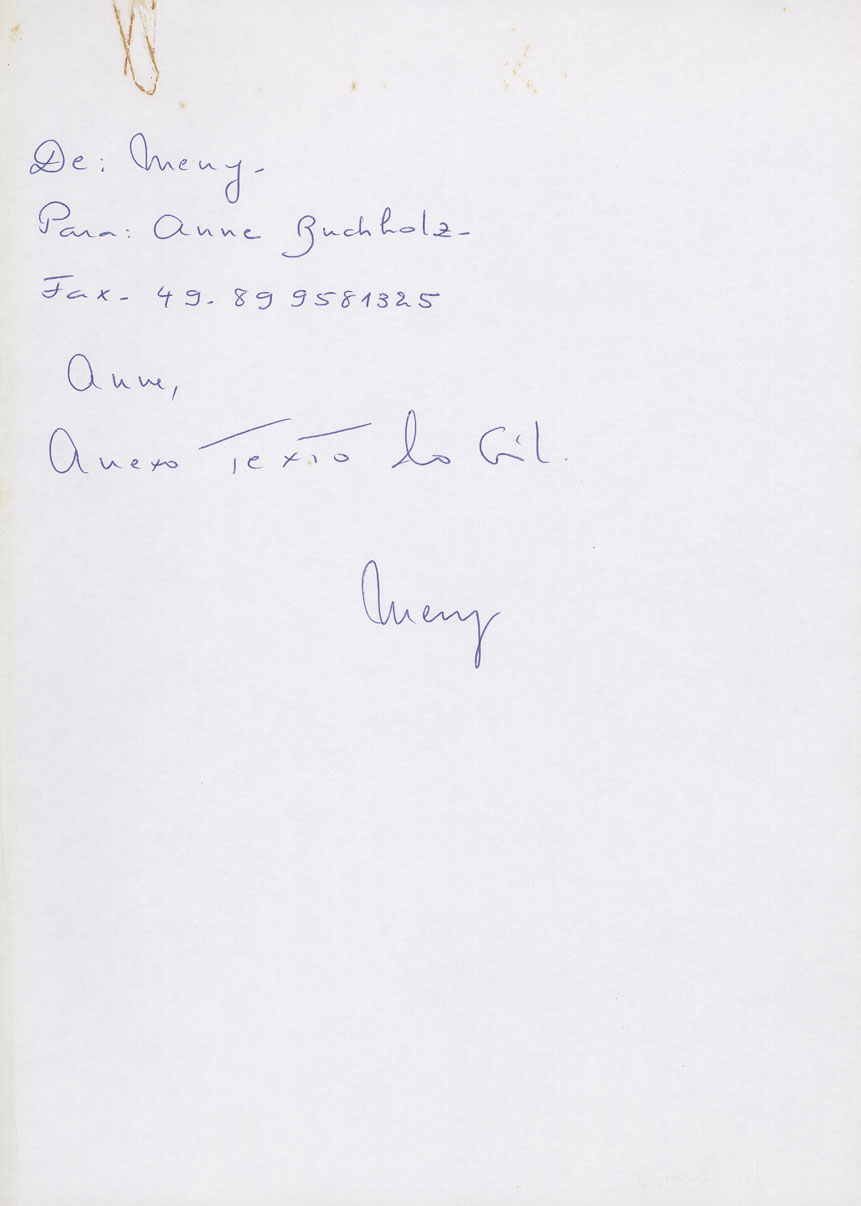 De: Meny-
Para: Anne Buchholz-
Fax- 49-89 9581325
Anne,
Anexo Texto do Gil.
Meny